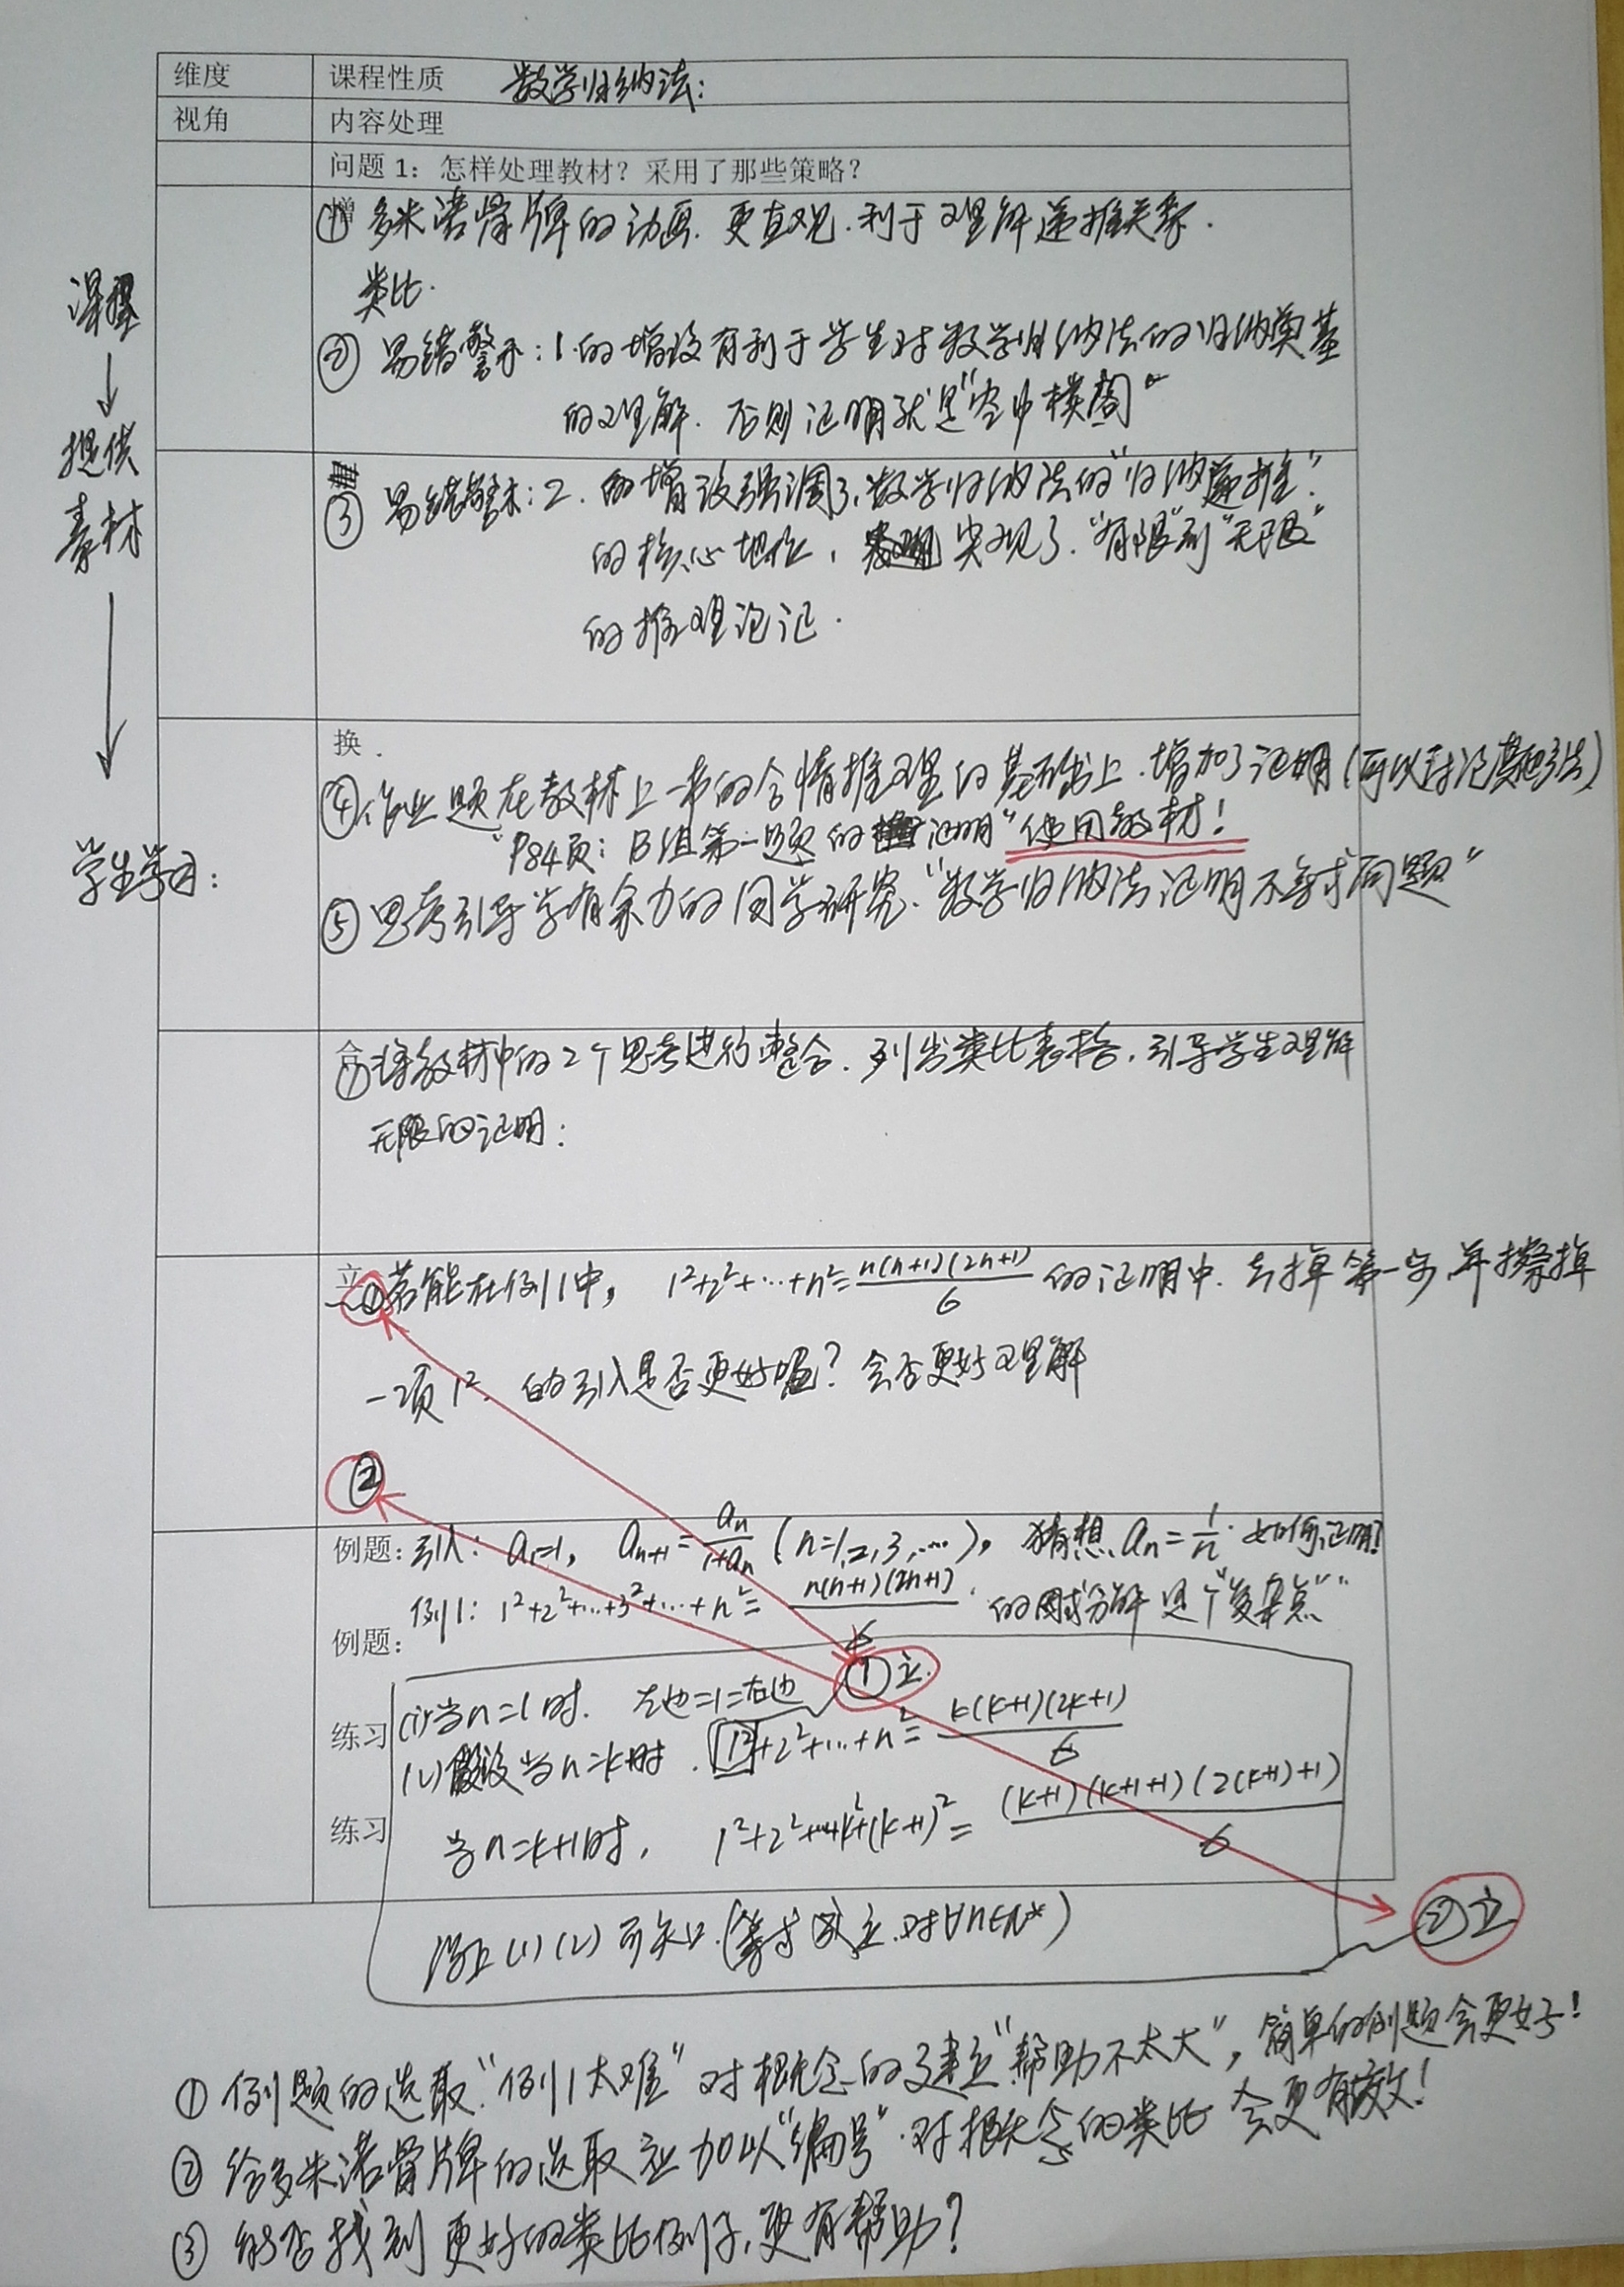 维度 课程性质 数学归纳法:
视角 内容处理
问题1：怎样处理教材？采用了那些策略？
增
① 多米诺骨牌的动画.更直观.利于理解递推关系.
类比.
② 易错警示:1.的增设有利于学生对数学归纳法的归纳奠基
的理解.否则证明就是"空中楼阁"
③ 易错警示:2.的增设强调了数学归纳法的"归纳递推"
的核心地位, 实现了."有限"到"无限"
的推理论证.
课堂
↓
提供
素材
↓
学生学习:
换.
④作业题在教材上一节的合情推理的基础上.增加了证明(可以讨论其他方法)
"P84页:B组第一题的证明"使用教材!
⑤ 思考引导学有余力的同学研究."数学归纳法证明不等式问题"
合
①将教材中的2个思考进行整合.列出类比表格.引导学生理解
无限的证明:
立
①若能在例1中, 1²+2²+…+n²=n(n+1)(2n+1)/6 的证明中.去掉第一步,并擦掉
一项1².的引入是否更好呢?会否更好理解
②
例题: 引入: a₁=1, aₙ₊₁=aₙ/1+aₙ (n=1,2,3,…), 猜想aₙ=1/n.如何证明?
例1: 1²+2²+…+3²+…+n²=n(n+1)(2n+1)/6.的因式分解是个"复杂点"
例题:
①立.
练习 (1)当n=1时. 左边=1=右边
(2)假设当n=k时. 1²+2²+…+n²=k(k+1)(2k+1)/6
练习 当n=k+1时, 1²+2²+…+k²+(k+1)²=(k+1)(k+1+1)(2(k+1)+1)/6
②立
综上(1)(2)可知.(等式成立.对∀n∈N*)
① 例题的选取."例1太难"对概念的建立"帮助不太大",简单的例题会更好!
② 给多米诺骨牌的选取应加以"编号".对概念的类比会更有效!
③ 能否找到更好的类比例子,更有帮助?